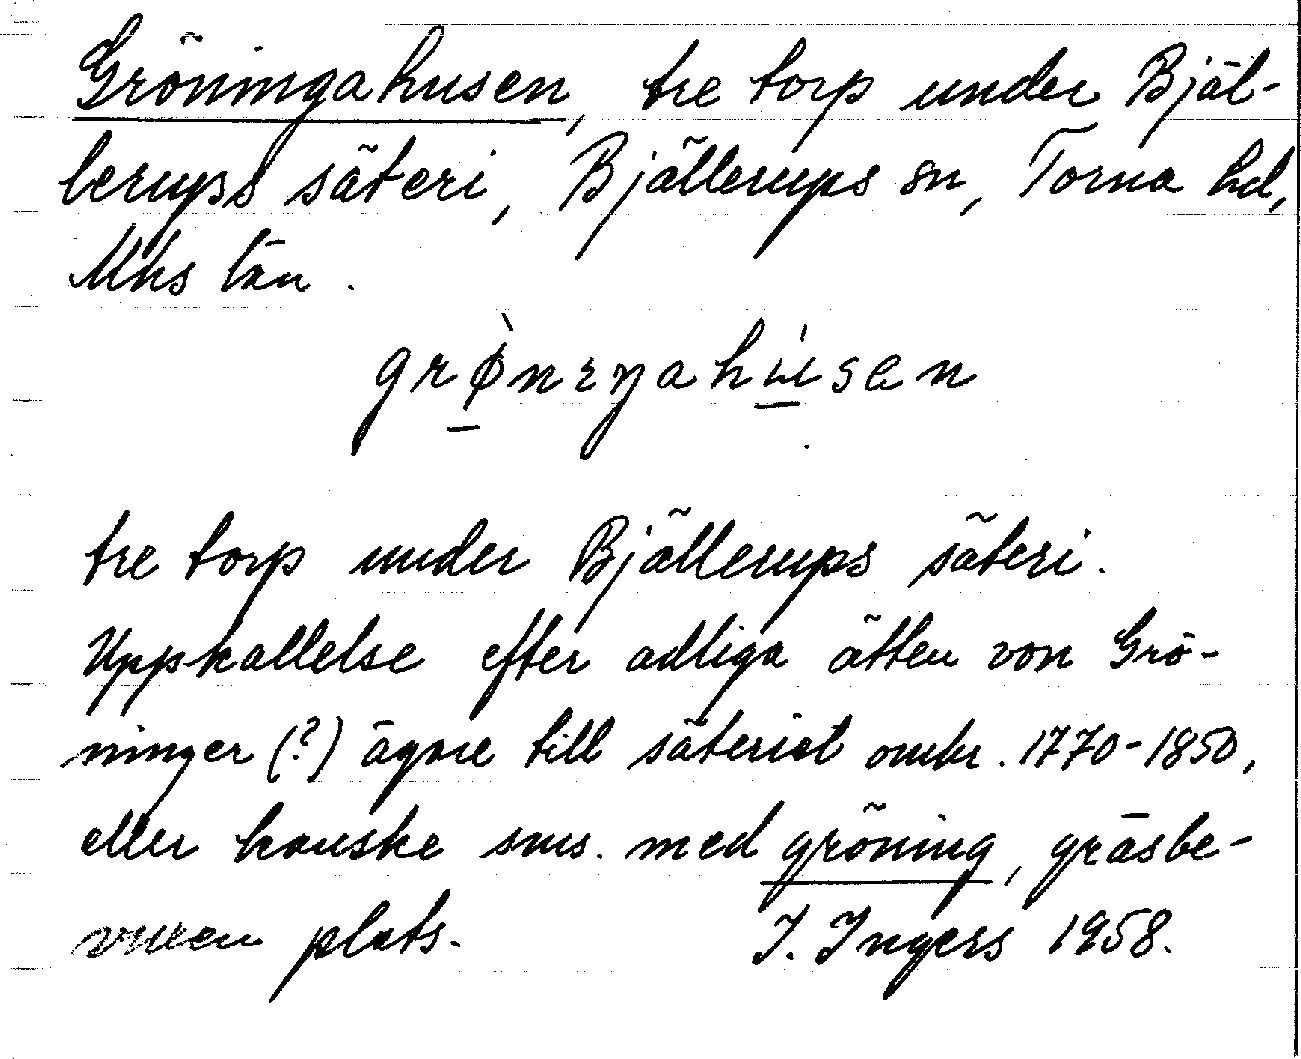 Gröningahusen, tre torp under Bjäl-
lerups säteri, Bjällerups sn, Torna hd,
Mhs län.
grø̀nıŋahúsen
tre torp under Bjällerups säteri.
Uppkallelse efter adliga ätten von Grö-
ninger (?) ägare till säteriet omkr. 1770-1850,
eller kanske sms. med gröning, gräsbe-
vuxen plats. I. Ingers 1958.